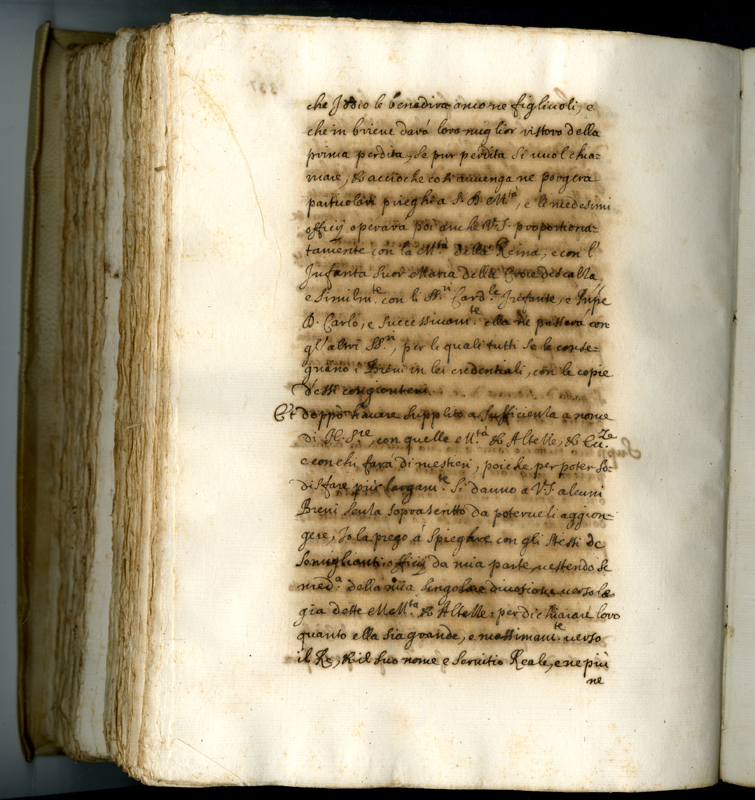 che Iddio le benedirà anco ne figliuoli, e
che in brieve darà loro miglior ristoro della
prima perdita, se pur perdita si vuol chia-
mare, & accioche così avvenga ne porgerà
particolari prieghi a S. D. M.tà, e le medesimi
officij operarà poi anche V.S. proportiona-
tamente con la M.tà della Reina, e con l'
Infanta Suor Maria della Croce descalla
e similm.te con li SS.ri Card.le Infante, e
D. Carlo, e successivam.te ella ne passarà con
gl'altri SS.ri, per li quali tutti se le conse-
gnano i Brevi in lei credentiali, con le copie
d'essi congionteui.
Et doppo havere supplito a sufficienza a nome
di N. S.re, con quelle M.tà & Altezze, & Ecc.ze
e con chi farà di mestieri, poiche per poter so-
disfare più largam.te si danno a V.S. alcuni
Brevi senza soprascritto da poterveli aggion-
gere, Io la prego à spieghre con gli stessi
somiglianti officij da mia parte, vestendo se
med.a della mia singolare divotione verso le
gia dette MM.tà & Altezze: per dichiarare loro
quanto ella sia grande, e massimam.te verso
il Re, & il suo nome e servitio Reale, e ne più
ne